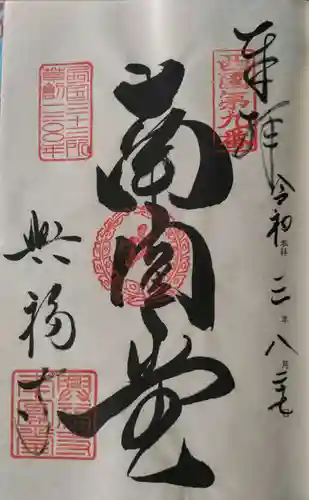 奉拝
西国第九番
令和二年八月二七
南円堂
西国三十三所
草創一三〇〇年
興福寺